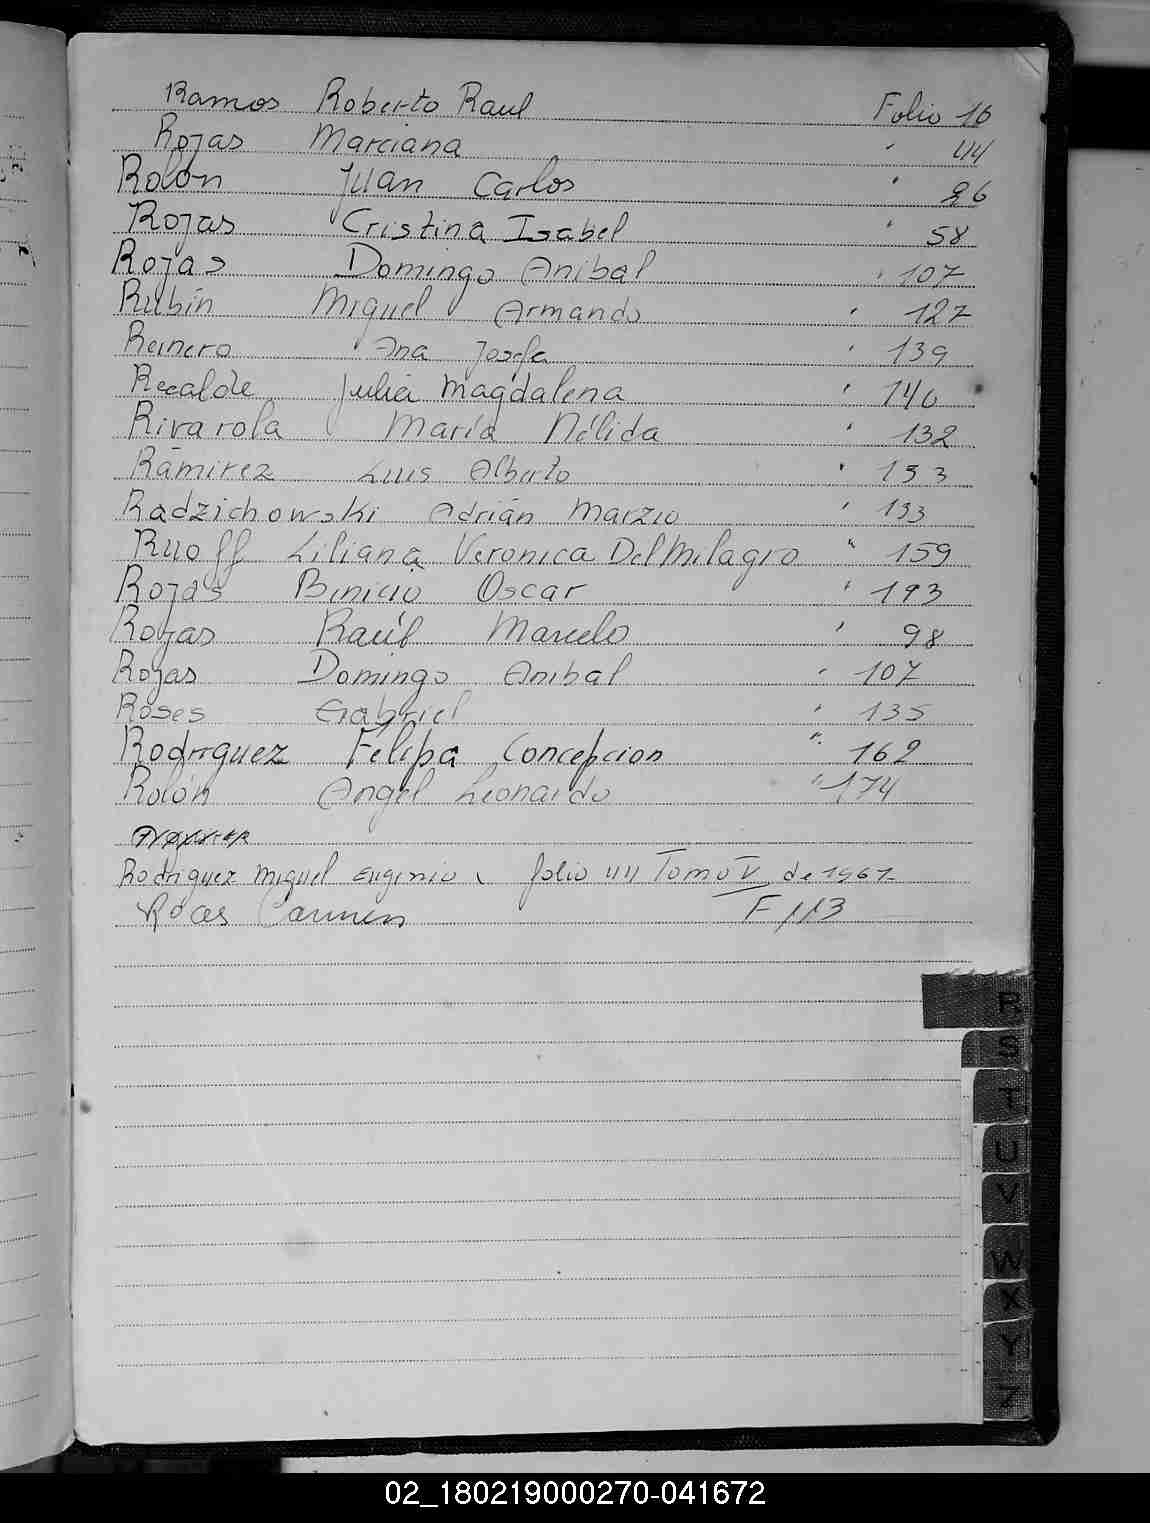 Ramos Roberto Raul Folio 16
Rojas Marciana " 44
Rolón Juan Carlos " 86
Rojas Cristina Isabel " 58
Rojas Domingo Anibal " 107
Rubín Miguel Armando " 127
Reinero Ana Josefa " 139
Recalde Julia Magdalena " 140
Rivarola María Nélida " 132
Ramirez Luis Alberto " 133
Radzichowski Adrián Marzio " 133
Ruoff Liliana Veronica Del Milagro " 159
Rojas Binicio Oscar " 193
Rojas Raúl Marcelo " 98
Rojas Domingo Anibal " 107
Roses Gabriel " 135
Rodriguez Felipa Concepcion " 162
Rolón Angel Leonardo " 174
Rodriguez Miguel Eugenio folio 44 Tomo V de 1967
Rocas Carmen F 113
R
S
T
U
V
W
X
Y
Z
02_180219000270-041672